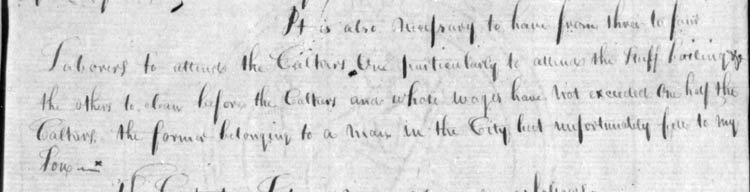 It is also necessary to have from three to four
Laborers to attend the Calkers, One particularly to attend the stuff boiling &
the others to clean before the Calkers and whose wages have not exceeded One half the
Calkers. the former belonging to a man in the City but unfortunately fell to my